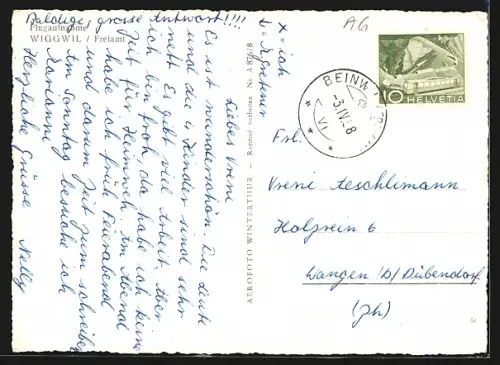 Baldige grosse Antwort!!!
Flugaufnahme
WIGGWIL / Freiamt
Liebes Vreni
Es ist wunderschön. Die Leute
und die Kinder sind sehr
nett. Es gibt viel Arbeit. Aber
ich bin froh, da habe ich keine
Zeit für Heimweh. Am Abend
habe ich früh Feierabend
und darum Zeit zum schreiben
Am Sonntag besuche ich
Marianni
Herzliche Grüsse Nelly
AEROFOTO WINTERTHUR – Reprod. verboten Nr. A 876/8
x = ich
AG
BEINW
3.IV.58
VI
10
HELVETIA
Frl.
Vreni Aeschlimann
Holzrein 6
Wangen b/Dübendorf
(Zh)